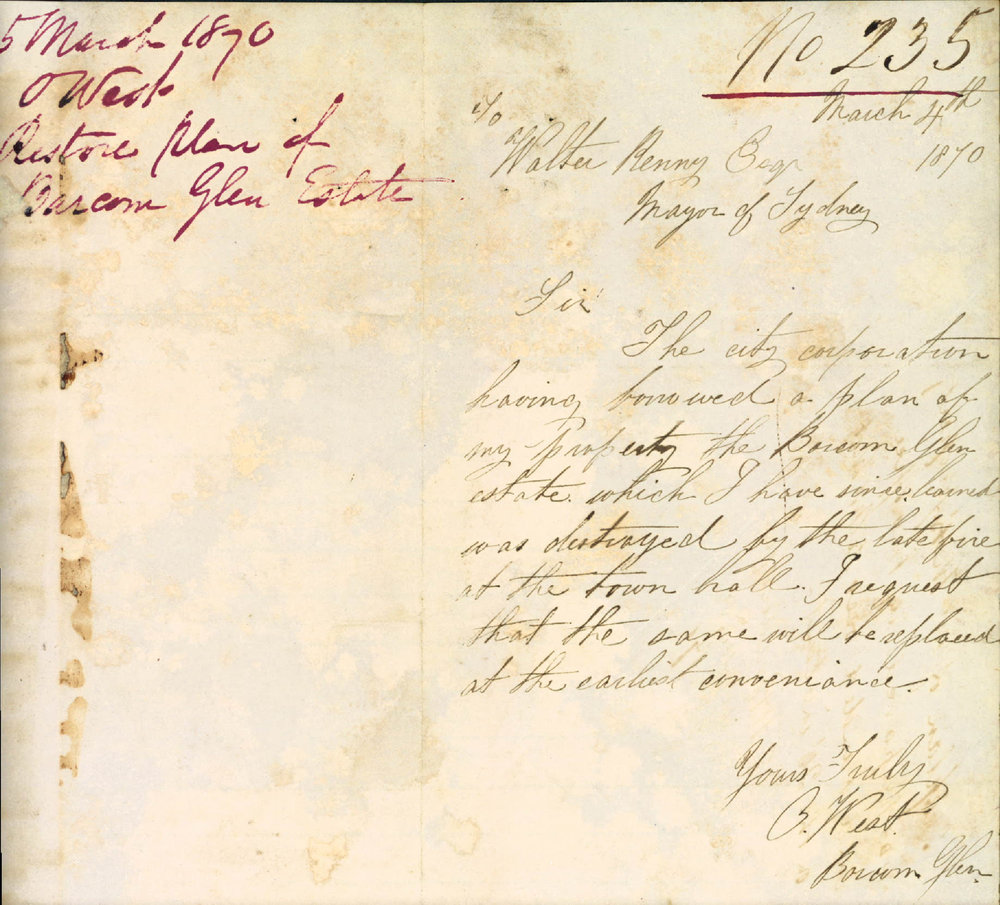 5 March 1870
O West
Restore Plan of
Barcom Glen Estate
No 235
March 4th
1870
To
Walter Renny Esqr
Mayor of Sydney
Sir
The city corporation
having borrowed a plan of
my property the Barcom Glen
estate which I have since learned
was destroyed by the late fire
at the town hall. I request
that the same will be replaced
at the earliest conveniance.
Yours Truly
O. West.
Barcom Glen.